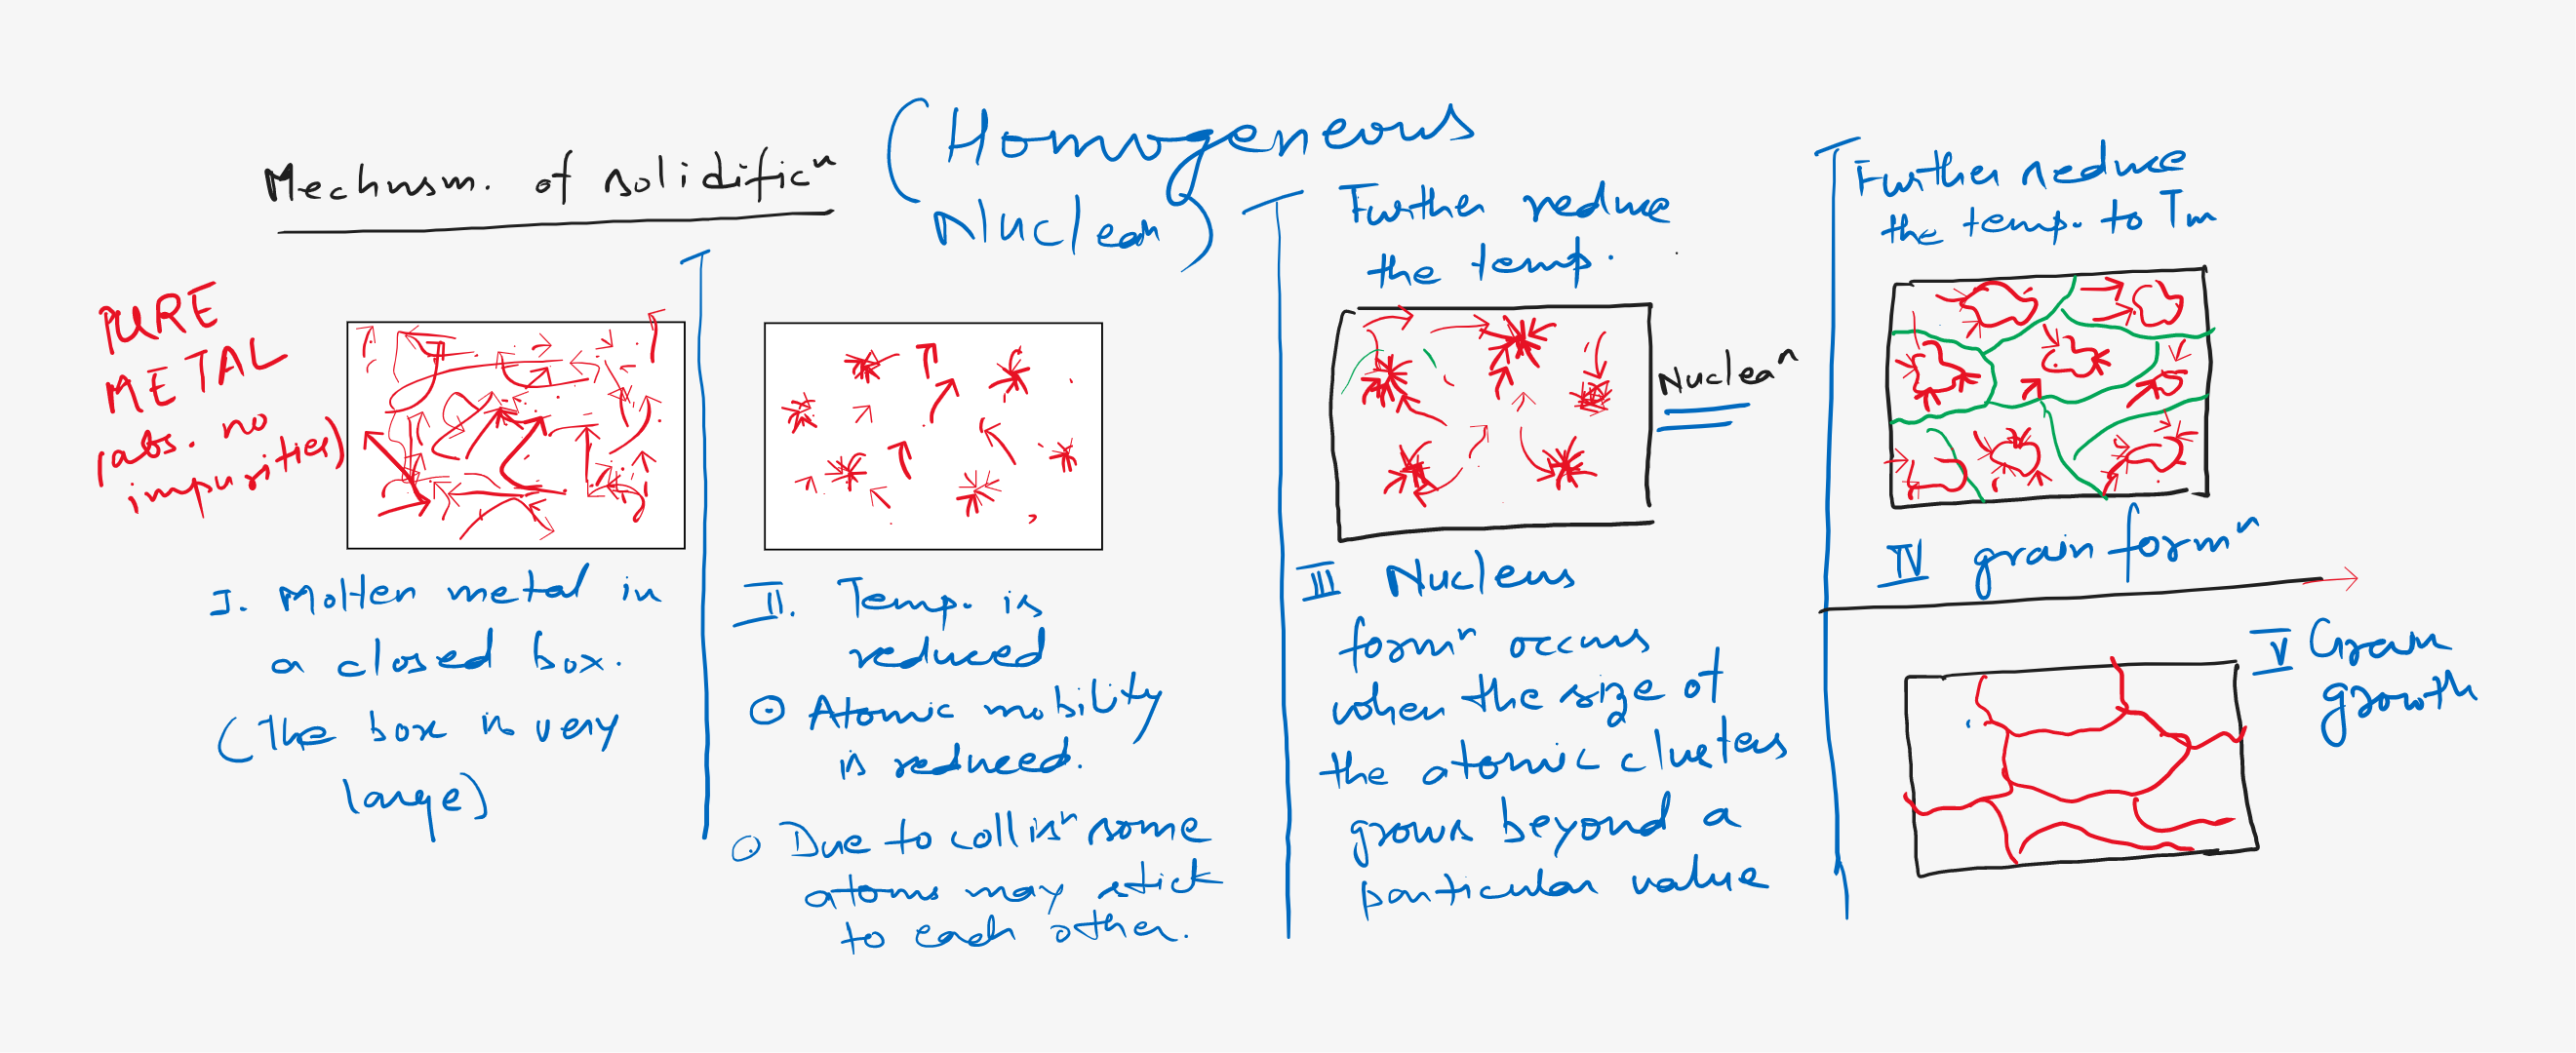 Mechnsm. of solidificⁿ
(Homogeneous
Nucleaⁿ)
PURE
METAL
(abs. no
impurities)
I. Molten metal in
a closed box.
(The box is very
large)
II. Temp. is
reduced
⊙ Atomic mobility
is reduced.
⊙ Due to collisⁿ some
atoms may stick
to each other.
Further reduce
the temp.
Nucleaⁿ
III Nucleus
formⁿ occurs
when the size of
the atomic clusters
grows beyond a
particular value
Further reduce
the temp. to Tm
IV grain formⁿ
V Grain
growth